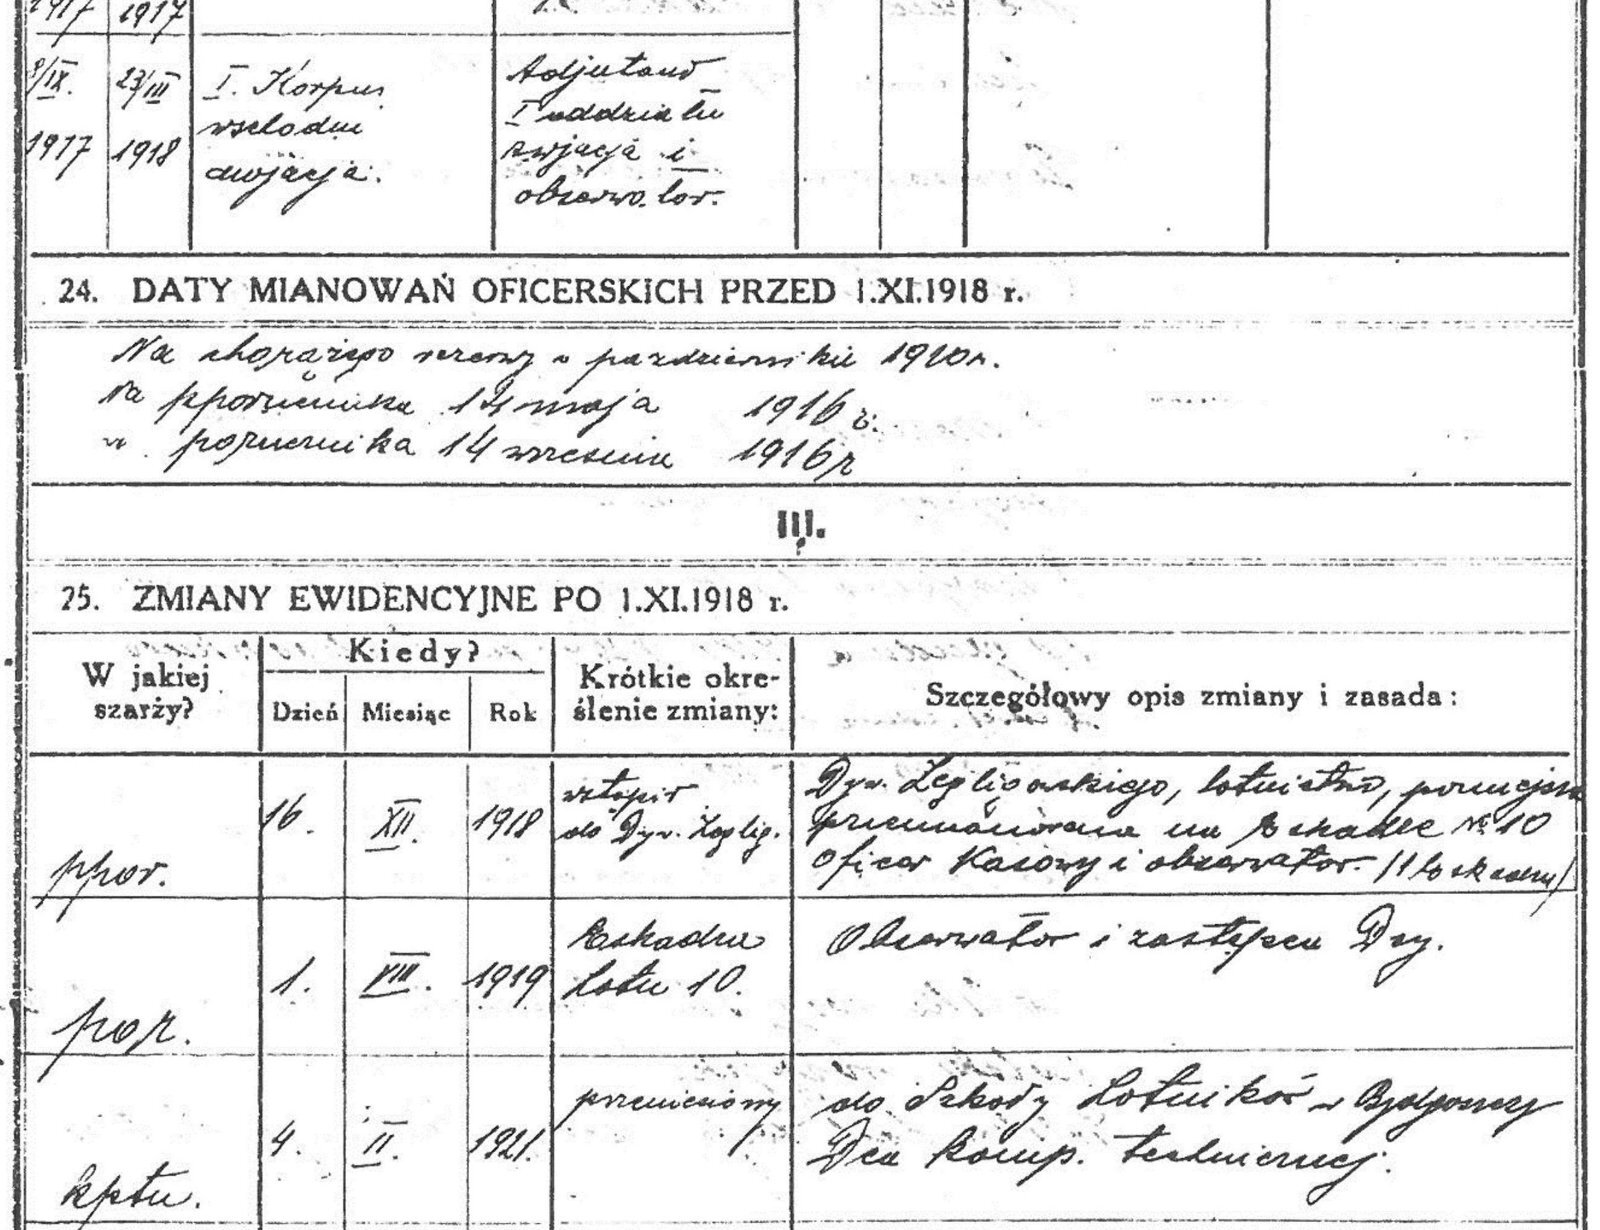 1917 1917
8/IX. 23/III I. Korpus Adjutant
wschodni I oddziału
1917 1918 awjacja. awjacja i
obserwator.
24. DATY MIANOWAŃ OFICERSKICH PRZED 1.XI.1918 r.
Na chorążego rezerwy w październiku 1910 r.
Na pporucznika 14 maja 1916 r.
" porucznika 14 września 1916 r
III.
25. ZMIANY EWIDENCYJNE PO 1.XI.1918 r.
W jakiej szarży?
Kiedy?
Dzień Miesiąc Rok
Krótkie okre-
ślenie zmiany:
Szczegółowy opis zmiany i zasada:
ppor. 16. XII. 1918 wstąpił
do Dyw. Żeglig.
Dyw. Żeligowskiego, lotnictwo,
przemianowana na Eskadrę № 10
Oficer Kasowy i obserwator.
por. 1. VIII. 1919 Eskadra
Lotn 10.
Obserwator i zastępca Dcy.
kptn. 4. II. 1921. przeniesiony
do Szkoły Lotników w Bydgoszczy
Dca Komp. technicznej.